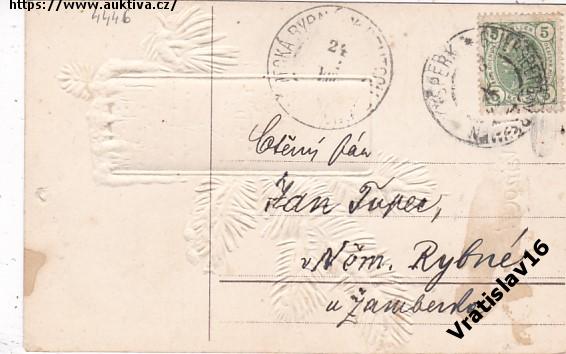 https://www.auktiva.cz/
4446
5 5
Ctěný pán
Jan Ťupec,
v Něm. Rybné
u Žamberka
Vratislav16